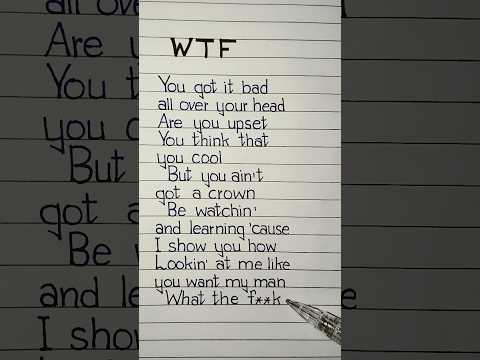 WTF
You got it bad
all over your head
Are you upset
You think that
you cool
But you ain't
got a crown
Be watchin'
and learning 'cause
I show you how
Lookin' at me like
you want my man
What the f**k